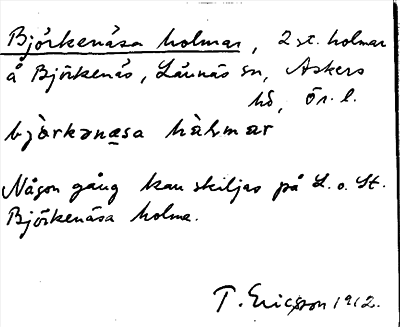 Björkenäsa holmar, 2 st. holmar
å Björkenäs, Lännäs sn, Askers
hd, Ör. l.
bjö̀rkənæsa hàlmar
Någon gång kan skiljas på L. o. St.
Björkenäsa holme.
T. Ericsson 1912.